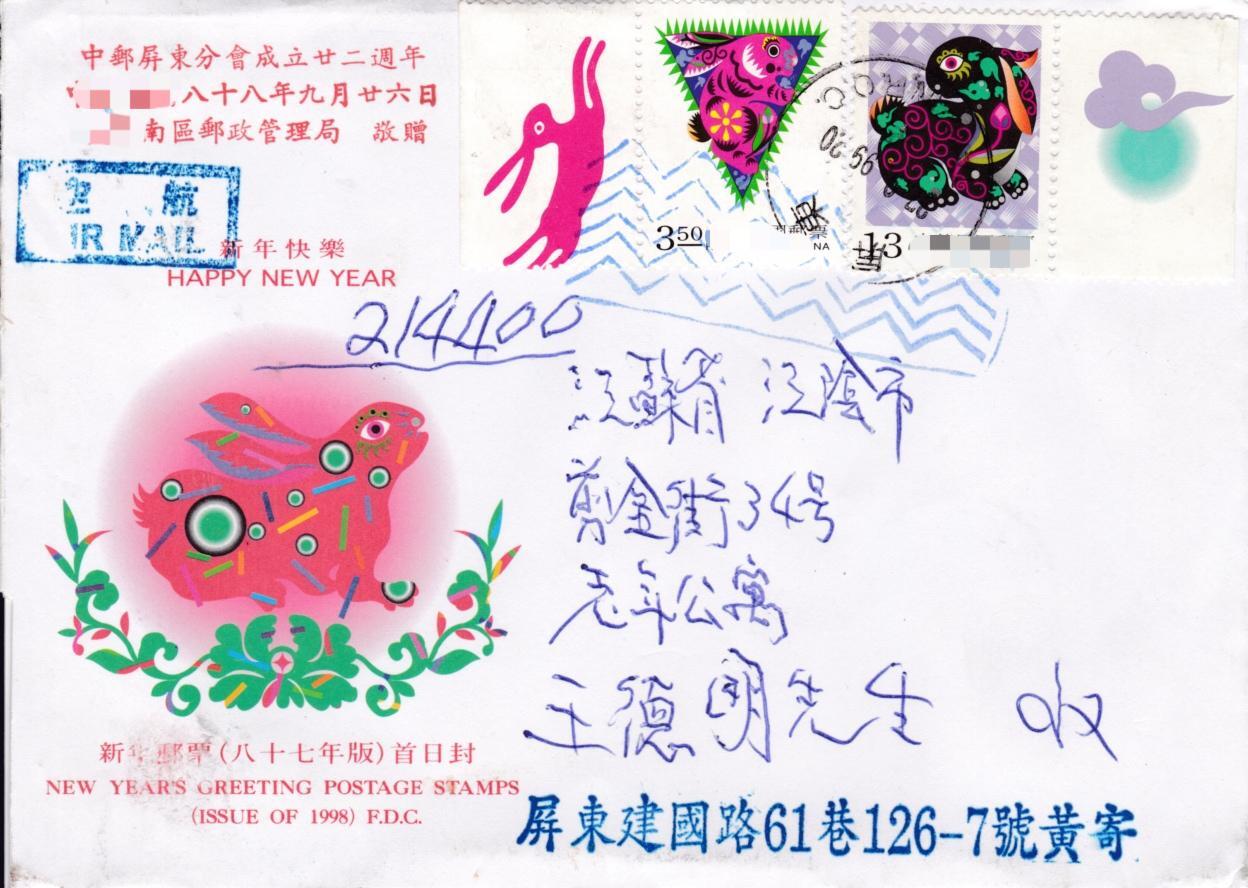 中郵屏東分會成立廿二週年
八十八年九月廿六日
南區郵政管理局 敬贈
航
AIR MAIL
新年快樂
HAPPY NEW YEAR
3.50
NA
13
214400
江蘇省 江陰市
剪金街34号
老年公寓
王德明先生 收
新年郵票(八十七年版)首日封
NEW YEAR'S GREETING POSTAGE STAMPS
(ISSUE OF 1998) F.D.C.
屏東建國路61巷126-7號黃寄